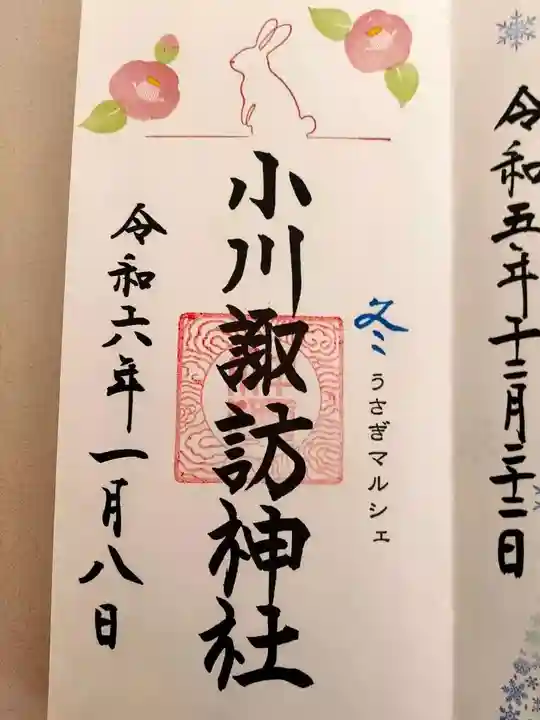 令和五年十二月二十二日
冬
うさぎマルシェ
小川諏訪神社
令和六年一月八日